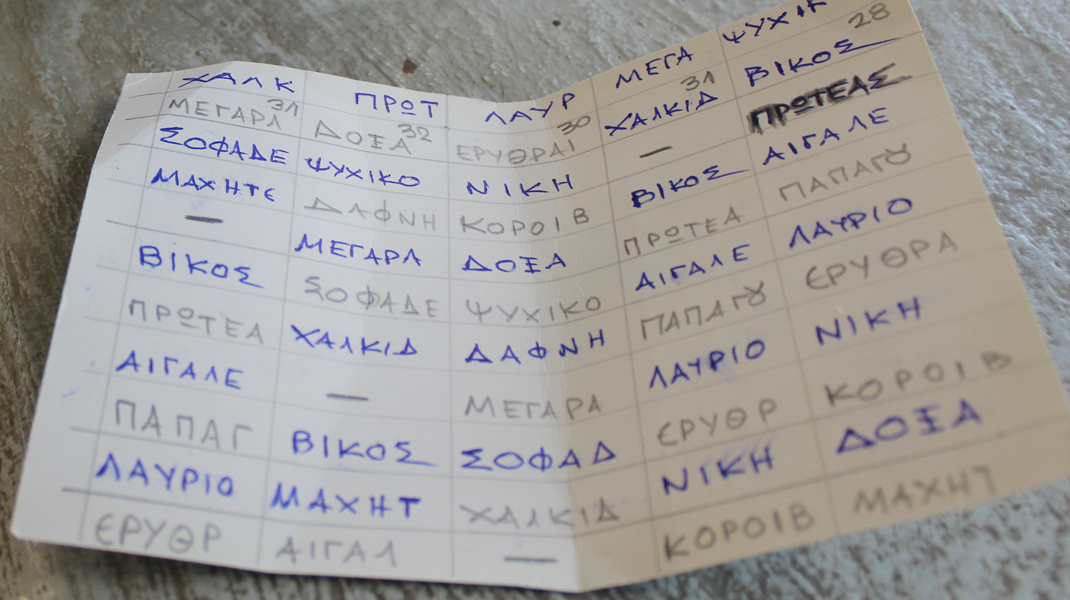 ΧΑΛΚ ΠΡΩΤ ΛΑΥΡ ΜΕΓΑ ΨΥΧΙΚ
ΜΕΓΑΡΛ 31 ΔΟΞΑ 32 ΕΡΥΘΡΑΙ 30 ΧΑΛΚΙΔ 31 ΒΙΚΟΣ 28
ΣΟΦΑΔΕ ΨΥΧΙΚΟ ΝΙΚΗ — ΠΡΩΤΕΑΣ
ΜΑΧΗΤΕ ΔΑΦΝΗ ΚΟΡΟΙΒ ΒΙΚΟΣ ΑΙΓΑΛΕ
— ΜΕΓΑΡΛ ΔΟΞΑ ΠΡΩΤΕΑ ΠΑΠΑΓΟΥ
ΒΙΚΟΣ ΣΟΦΑΔΕ ΨΥΧΙΚΟ ΑΙΓΑΛΕ ΛΑΥΡΙΟ
ΠΡΩΤΕΑ ΧΑΛΚΙΔ ΔΑΦΝΗ ΠΑΠΑΓΟΥ ΕΡΥΘΡΑ
ΑΙΓΑΛΕ — ΜΕΓΑΡΑ ΛΑΥΡΙΟ ΝΙΚΗ
ΠΑΠΑΓ ΒΙΚΟΣ ΣΟΦΑΔ ΕΡΥΘΡ ΚΟΡΟΙΒ
ΛΑΥΡΙΟ ΜΑΧΗΤ ΧΑΛΚΙΔ ΝΙΚΗ ΔΟΞΑ
ΕΡΥΘΡ ΑΙΓΑΛ — ΚΟΡΟΙΒ ΜΑΧΗΤ